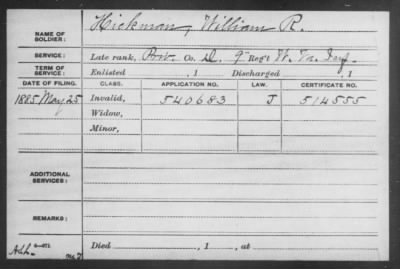 NAME OF SOLDIER: Hickman, William R.
SERVICE: Late rank, Prvt. Co. D, 9 Reg't W. Va. Inf.
TERM OF SERVICE: Enlisted , 1 Discharged , 1
DATE OF FILING. CLASS. APPLICATION NO. LAW. CERTIFICATE NO.
1885 May 25 Invalid, 540683 J 514555
Widow,
Minor,
ADDITIONAL SERVICES:
REMARKS:
Died , 1 , at